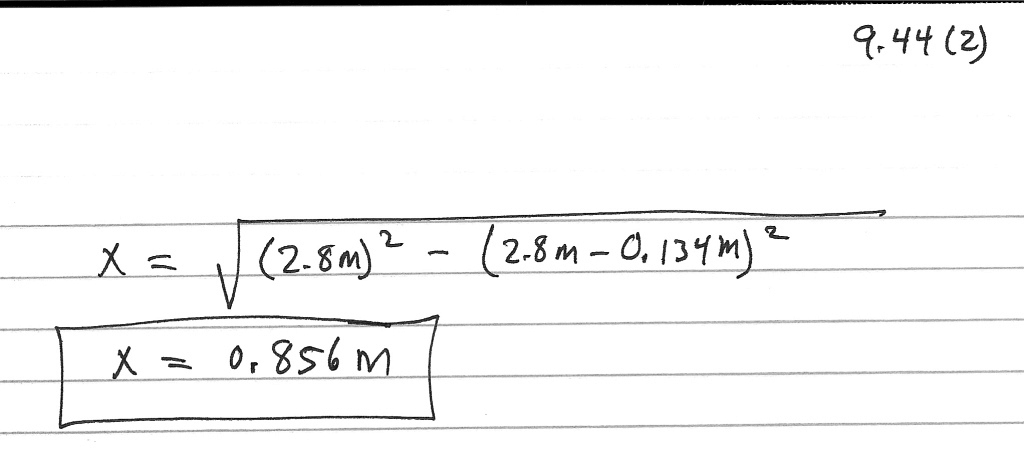 9.44 (2)
x = √(2.8m)² - (2.8m - 0.134m)²
x = 0.856 m